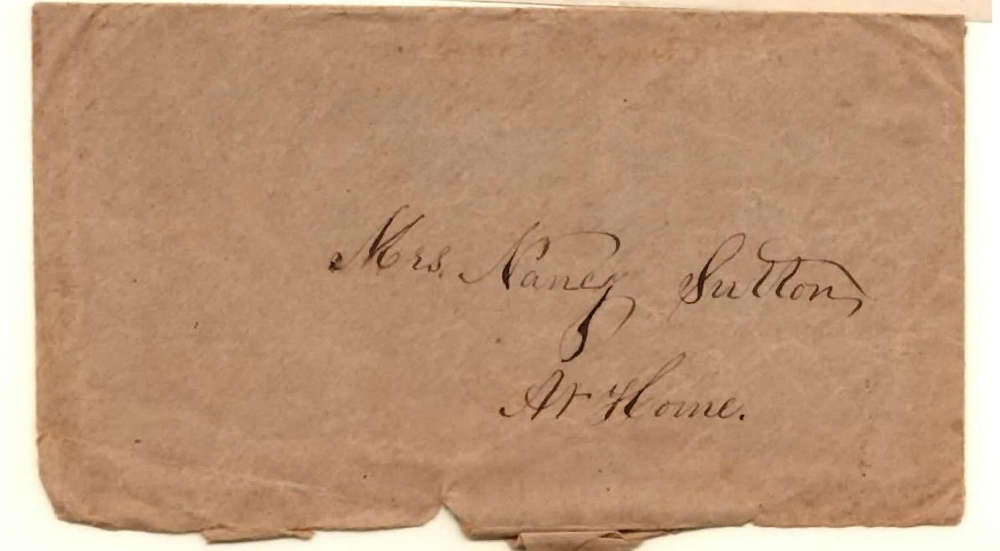 Mrs. Nancy Sutton
At Home.